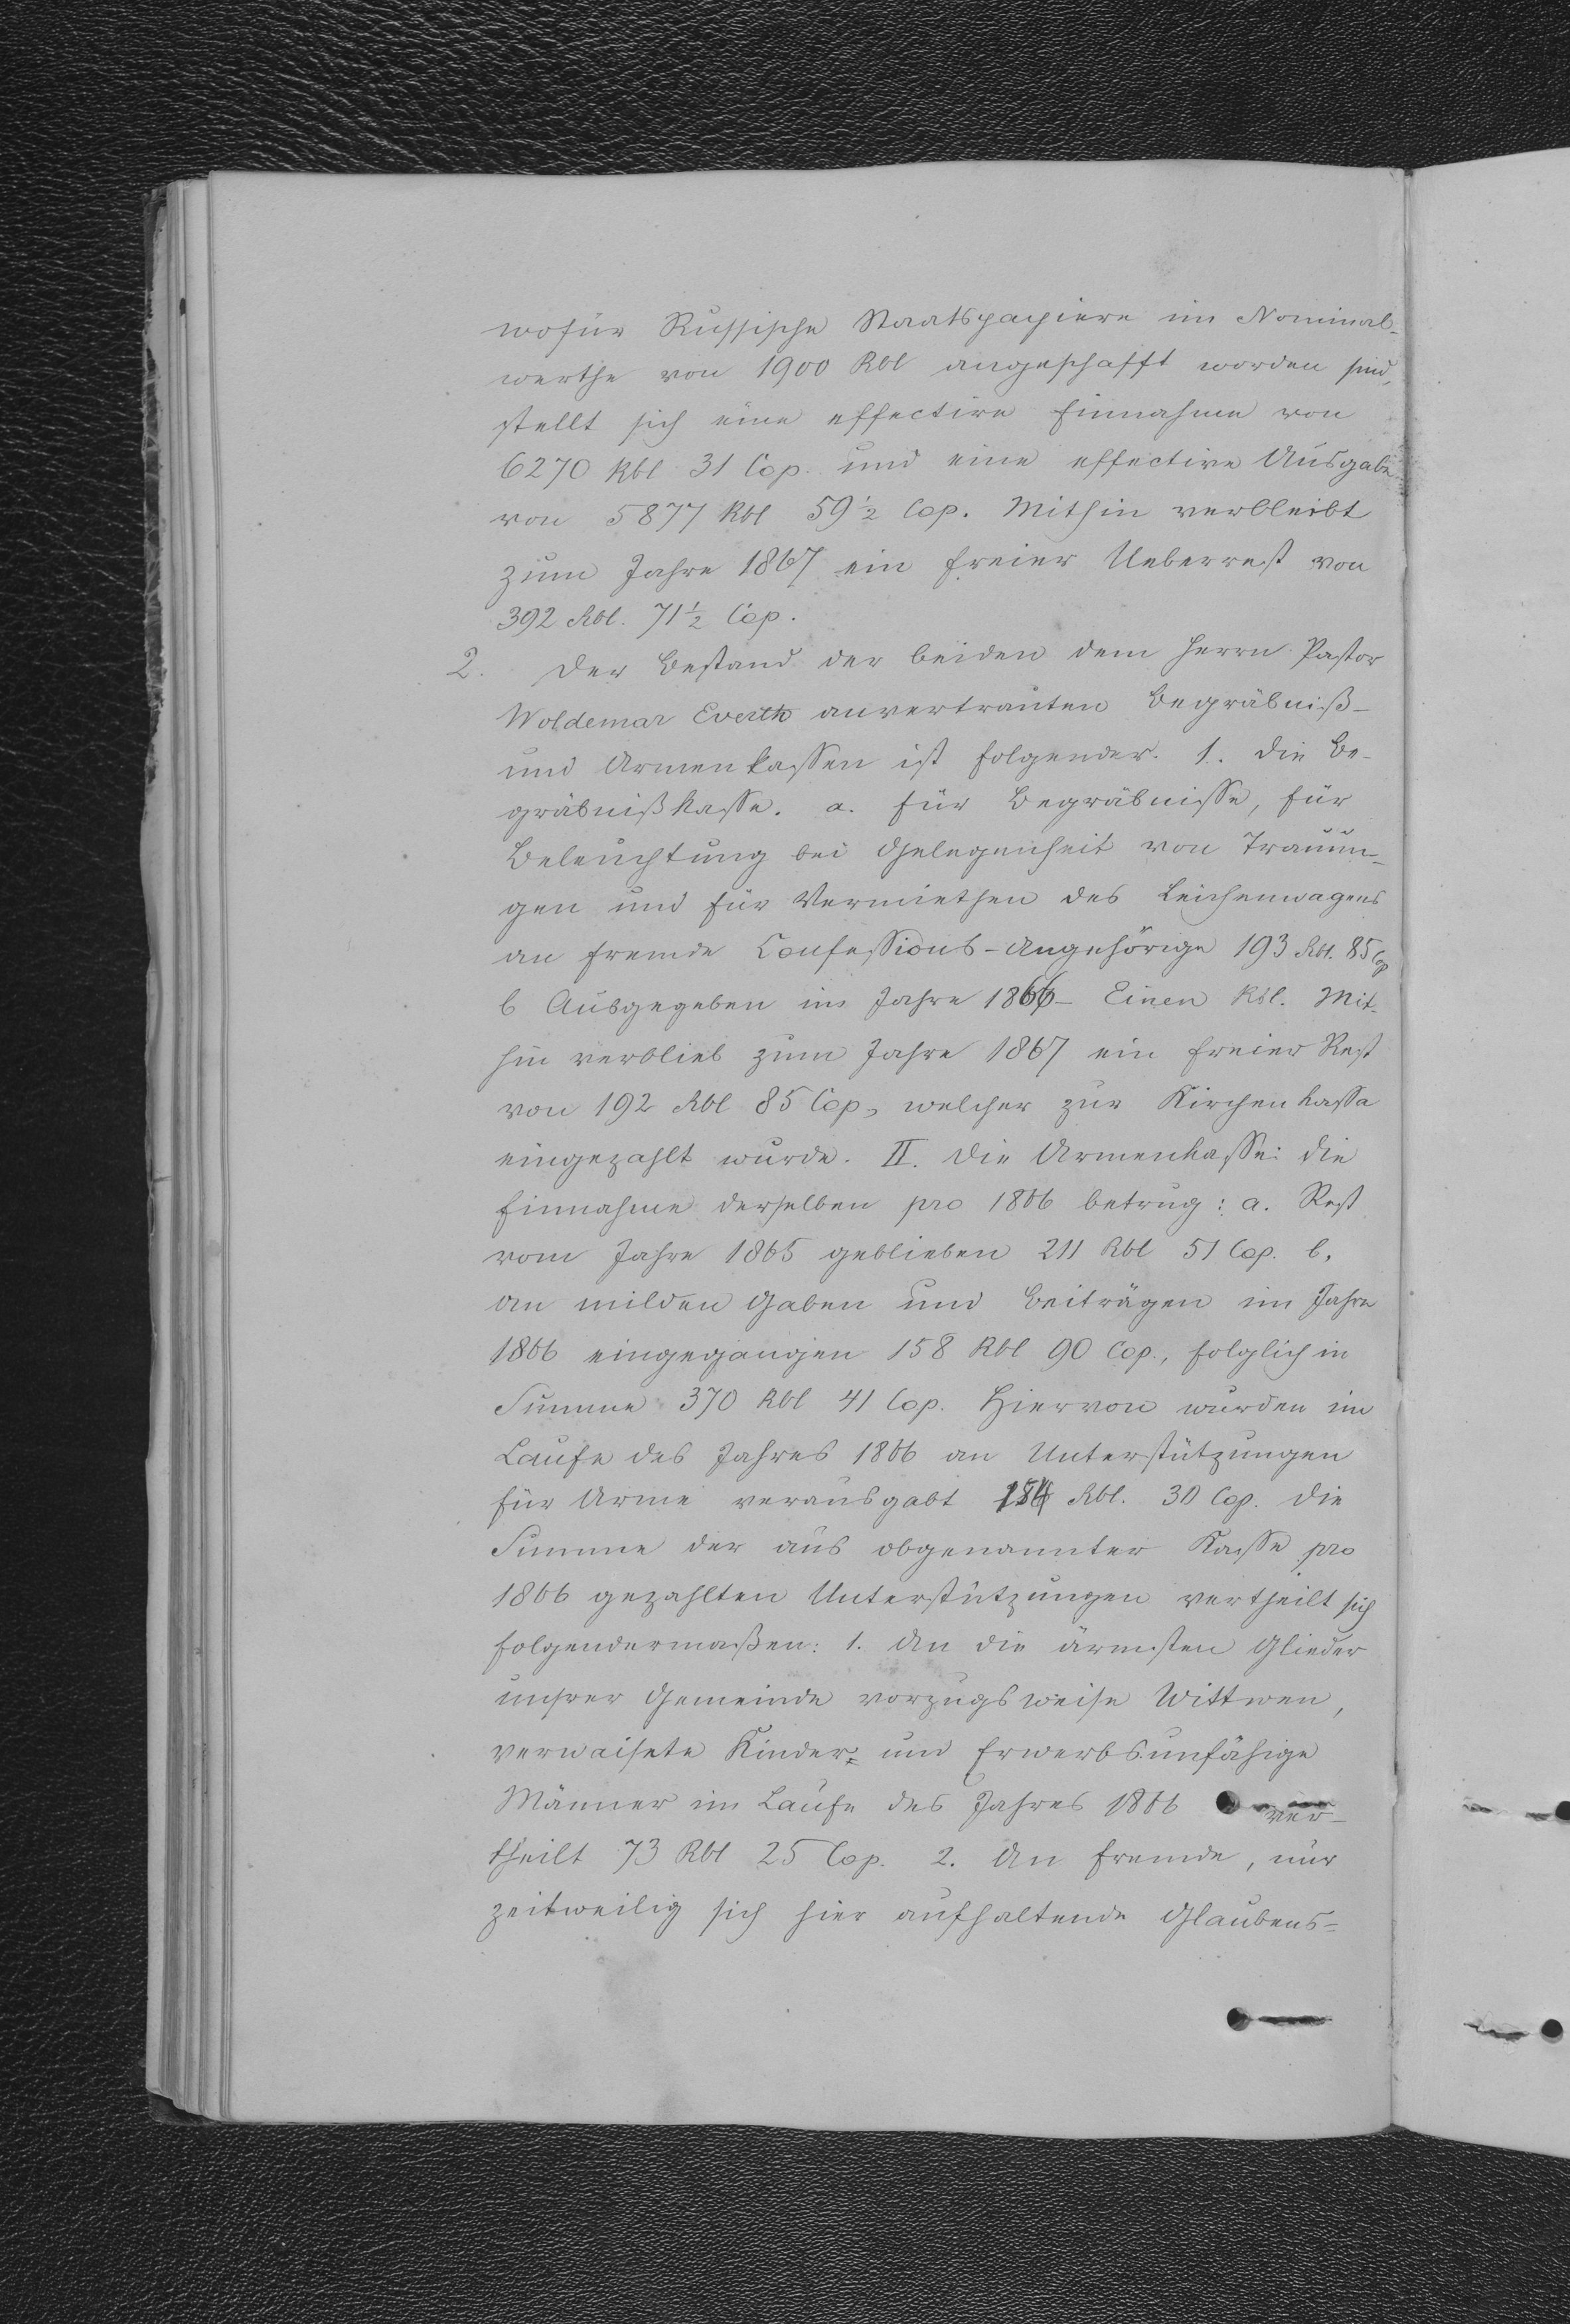 wofür Russische Staatspapiere im Nominal-
werthe von 1900 Rbl angeschafft worden sind,
stellt sich eine effective Einnahme von
6270 Rbl 31 Cop. und eine effective Ausgabe
von 5877 Rbl 59½ Cop. Mithin verbleibt
zum Jahre 1867 ein freier Ueberrest von
392 Rbl. 71½ Cop.
2. Der Bestand der beiden dem Herrn Pastor
Woldemar Everth anvertrauten Begräbniß-
und Armenkassen ist folgender. 1. Die Be-
gräbnißkasse. a. für Begräbnisse, für
Beleuchtung bei Gelegenheit von Trauun-
gen und für Vermiethen des Leichenwagens
an fremde Confessions-Angehörige 193 Rbl. 85 Cop
b Ausgegeben im Jahre 1866 - Einen Rbl. Mit-
hin verblieb zum Jahre 1867 ein freier Rest
von 192 Rbl 85 Cop, welcher zur Kirchenkassa
eingezahlt wurde. II. Die Armenkasse: die
Einnahme derselben pro 1866 betrug: a. Rest
vom Jahre 1865 geblieben 211 Rbl 51 Cop. b.
an milden Gaben und Beiträgen im Jahre
1866 eingegangen 158 Rbl 90 Cop., folglich in
Summe 370 Rbl 41 Cop. Hiervon wurden im
Laufe des Jahres 1866 an Unterstützungen
für Arme verausgabt 184 Rbl. 30 Cop. Die
Summe der aus obgenannter Kasse pro
1866 gezahlten Unterstützungen vertheilt sich
folgendermaßen: 1. An die ärmsten Glieder
unsrer Gemeinde vorzugsweise Wittwen,
verwaisete Kinder und Erwerbsunfähige
Männer im Laufe des Jahres 1866 ver-
theilt 73 Rbl 25 Cop. 2. An fremde, nur
zeitweilig sich hier aufhaltende Glaubens-